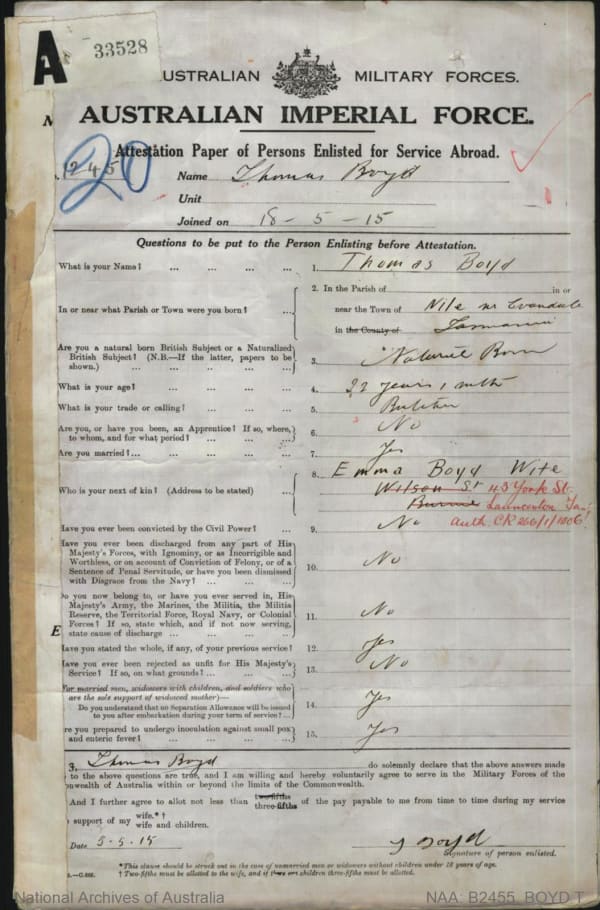 A
33528
AUSTRALIAN MILITARY FORCES.
AUSTRALIAN IMPERIAL FORCE.
Attestation Paper of Persons Enlisted for Service Abroad.
2450 20 Name Thomas Boyd
Unit
Joined on 18-5-15
Questions to be put to the Person Enlisting before Attestation.
What is your Name? ... ... ... ... 1. Thomas Boyd
In or near what Parish or Town were you born? ... 2. In the Parish of in or
near the Town of Nile nr Evandale
in the County of Tasmania
Are you a natural born British Subject or a Naturalized
British Subject? (N.B.—If the latter, papers to be
shown.) ... ... ... ... ... 3. Natural Born
What is your age? ... ... ... ... 4. 22 years 1 mth
What is your trade or calling? ... ... ... 5. Butcher
Are you, or have you been, an Apprentice? If so, where,
to whom, and for what period? ... ... ... 6. No
Are you married? ... ... ... ... 7. Yes
Who is your next of kin? (Address to be stated) ... 8. Emma Boyd Wife
Wilson St 43 York St.
Burnie Launceston Tas.
auth. CR 260/1/1806
Have you ever been convicted by the Civil Power? ... 9. No
Have you ever been discharged from any part of His
Majesty's Forces, with Ignominy, or as Incorrigible and
Worthless, or on account of Conviction of Felony, or of a
Sentence of Penal Servitude, or have you been dismissed
with Disgrace from the Navy? ... ... ... 10. No
Do you now belong to, or have you ever served in, His
Majesty's Army, the Marines, the Militia, the Militia
Reserve, the Territorial Force, Royal Navy, or Colonial
Forces? If so, state which, and if not now serving,
state cause of discharge ... ... ... ... 11. No
E
Have you stated the whole, if any, of your previous service? 12. Yes
Have you ever been rejected as unfit for His Majesty's
Service? If so, on what grounds? ... ... ... 13. No
For married men, widowers with children, and soldiers who
are the sole support of widowed mother)—
Do you understand that no Separation Allowance will be issued
to you after embarkation during your term of service? ... 14. Yes
Are you prepared to undergo inoculation against small pox
and enteric fever? ... ... ... ... 15. Yes
3. Thomas Boyd do solemnly declare that the above answers made
to the above questions are true, and I am willing and hereby voluntarily agree to serve in the Military Forces of the
Commonwealth of Australia within or beyond the limits of the Commonwealth.
And I further agree to allot not less than two-fifths three-fifths of the pay payable to me from time to time during my service
support of my wife.*†
wife and children.
Date 5-5-15 T Boyd
Signature of person enlisted.
*This clause should be struck out in the case of unmarried men or widowers without children under 18 years of age.
† Two-fifths must be allotted to the wife, and if there are children three-fifths must be allotted.
National Archives of Australia NAA: B2455, BOYD T